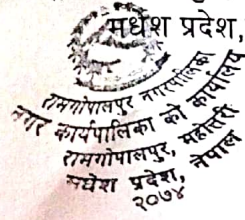 मधेश प्रदेश,
रामगोपालपुर नगरपालिका
नगर कार्यपालिका को कार्यालय
रामगोपालपुर, महोत्तरी
मधेश प्रदेश, नेपाल
२०७४